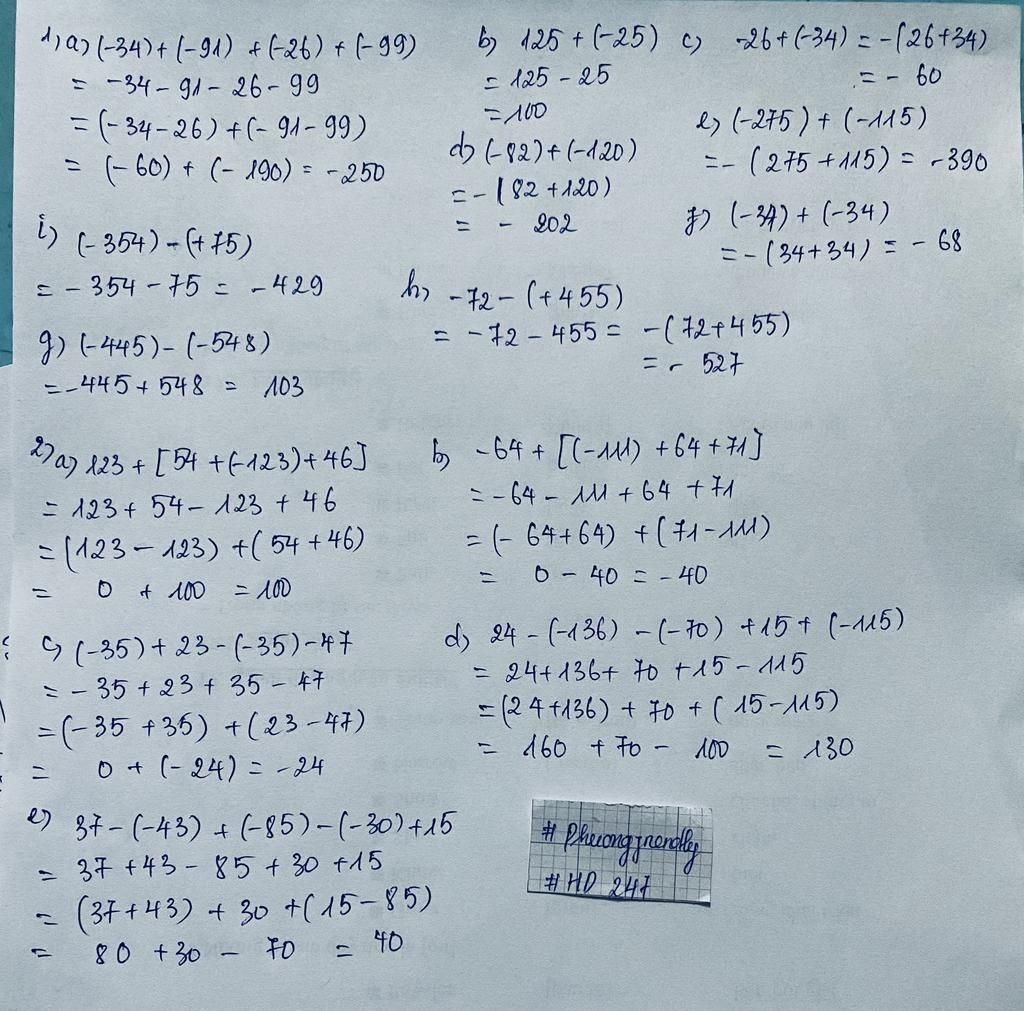 1, a) (-34) + (-91) + (-26) + (-99)
= -34 - 91 - 26 - 99
= (-34 - 26) + (- 91 - 99)
= (-60) + (- 190) = -250
b) 125 + (-25)
= 125 - 25
= 100
c) -26 + (-34) = -(26+34)
= - 60
d) (-82) + (-120)
= - (82 + 120)
= - 202
e) (-275) + (-115)
= - (275 + 115) = -390
f) (-34) + (-34)
= - (34 + 34) = - 68
i) (-354) - (+75)
= - 354 - 75 = -429
h) -72 - (+455)
= -72 - 455 = -(72+455)
= - 527
g) (-445) - (-548)
= -445 + 548 = 103
2) a) 123 + [54 + (-123) + 46]
= 123 + 54 - 123 + 46
= (123 - 123) + (54 + 46)
= 0 + 100 = 100
b) -64 + [(-111) + 64 + 71]
= -64 - 111 + 64 + 71
= (- 64 + 64) + (71 - 111)
= 0 - 40 = - 40
c) (-35) + 23 - (-35) - 47
= - 35 + 23 + 35 - 47
= (-35 + 35) + (23 - 47)
= 0 + (- 24) = -24
d) 24 - (-136) - (-70) + 15 + (-115)
= 24 + 136 + 70 + 15 - 115
= (24 + 136) + 70 + (15 - 115)
= 160 + 70 - 100 = 130
e) 37 - (-43) + (-85) - (-30) + 15
= 37 + 43 - 85 + 30 + 15
= (37 + 43) + 30 + (15 - 85)
= 80 + 30 - 70 = 40
# Phuongfrendly
# HD 247